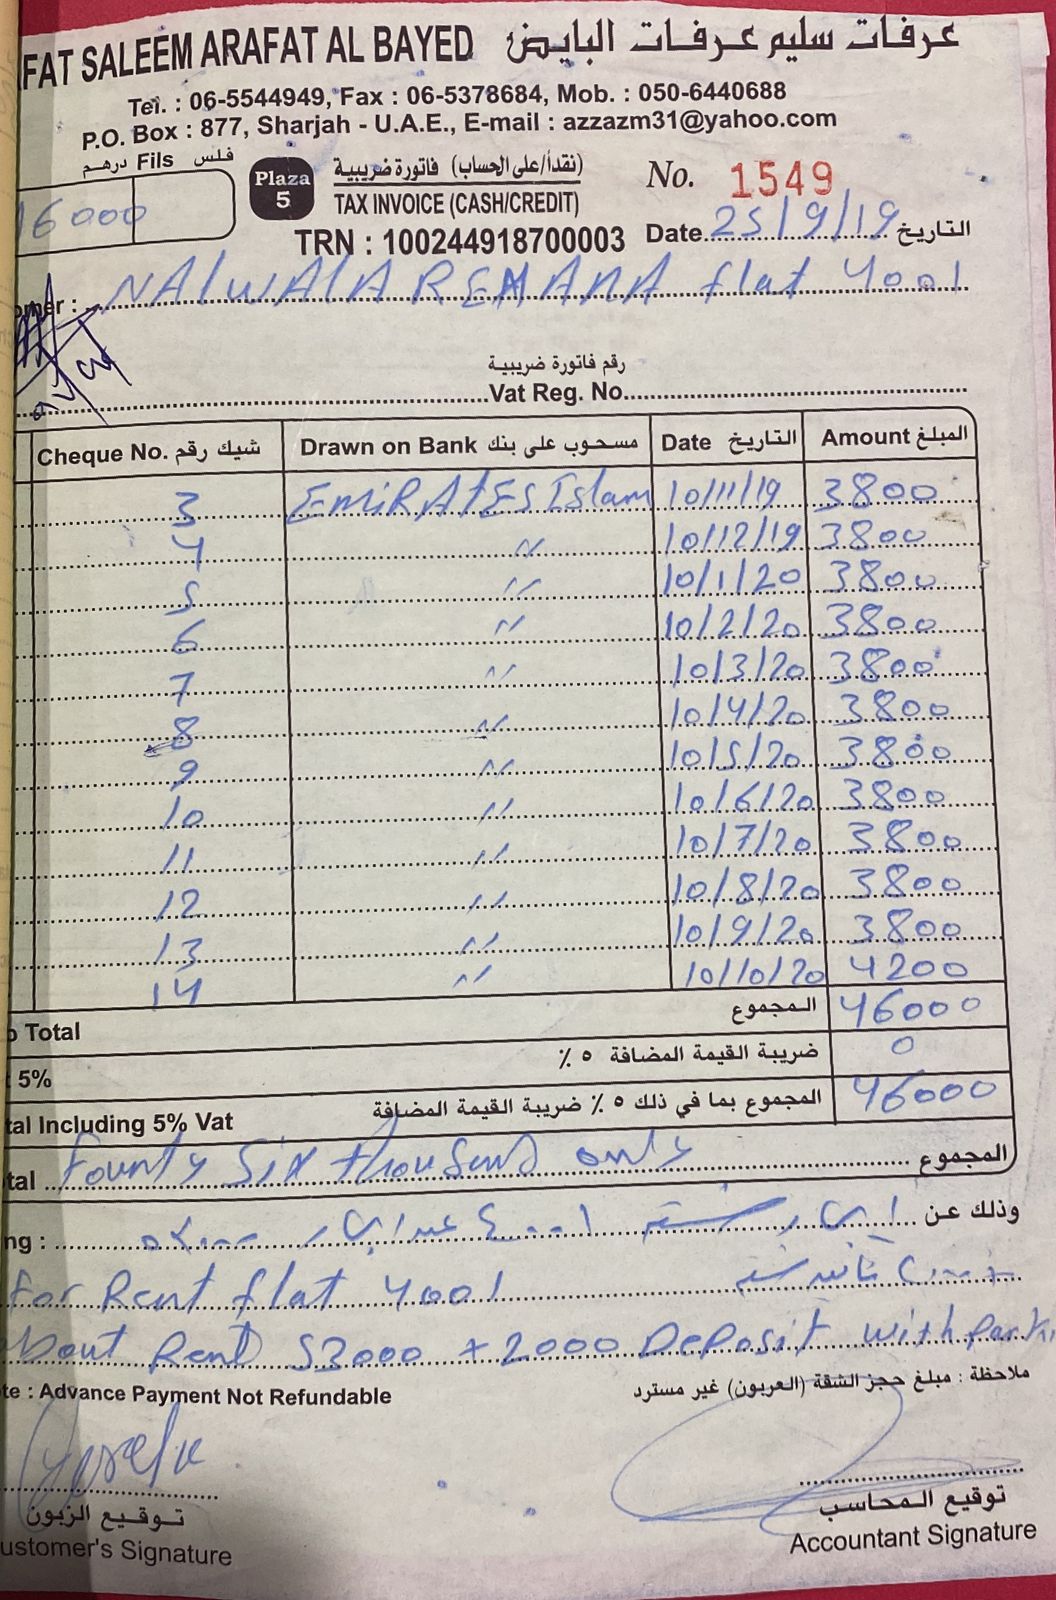 FAT SALEEM ARAFAT AL BAYED عرفات سليم عرفات البايض
Tel. : 06-5544949, Fax : 06-5378684, Mob. : 050-6440688
P.O. Box : 877, Sharjah - U.A.E., E-mail : azzazm31@yahoo.com
درهم Fils فلس
16000
Plaza 5
(نقداً/على الحساب) فاتورة ضريبية
TAX INVOICE (CASH/CREDIT)
TRN : 100244918700003
No. 1549
Date 25/9/19 التاريخ
omer : NAlWAlA REMANA flat 4001
رقم فاتورة ضريبية
Vat Reg. No.
Cheque No. شيك رقم Drawn on Bank مسحوب على بنك Date التاريخ Amount المبلغ
3 EMiRAtES Islam 10/11/19 3800
4 " 10/12/19 3800
5 " 10/1/20 3800
6 " 10/2/20 3800
7 " 10/3/20 3800
8 " 10/4/20 3800
9 " 10/5/20 3800
10 " 10/6/20 3800
11 " 10/7/20 3800
12 " 10/8/20 3800
13 " 10/9/20 3800
14 " 10/10/20 4200
Total المجموع 46000
5% ضريبة القيمة المضافة ٥ ٪ 0
tal Including 5% Vat المجموع بما في ذلك ٥ ٪ ضريبة القيمة المضافة 46000
tal Founty Six thousend only المجموع
ng : ٤٠٠١ وذلك عن
for Rent flat 4001
about Rent 53000 + 2000 Deposit with park
te : Advance Payment Not Refundable ملاحظة : مبلغ حجز الشقة (العربون) غير مسترد
توقيع الزبون
ustomer's Signature
توقيع المحاسب
Accountant Signature